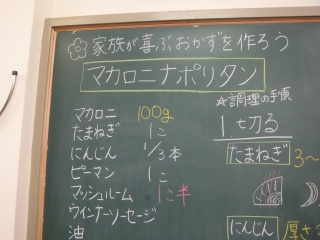 家族が喜ぶおかずを作ろう
マカロニナポリタン
マカロニ 100g
たまねぎ 1コ
にんじん 1/3本
ピーマン 1コ
マッシュルーム 1コ半
ウインナーソーセージ
油
☆調理の手順
1.切る
たまねぎ 3〜
にんじん 厚さ3